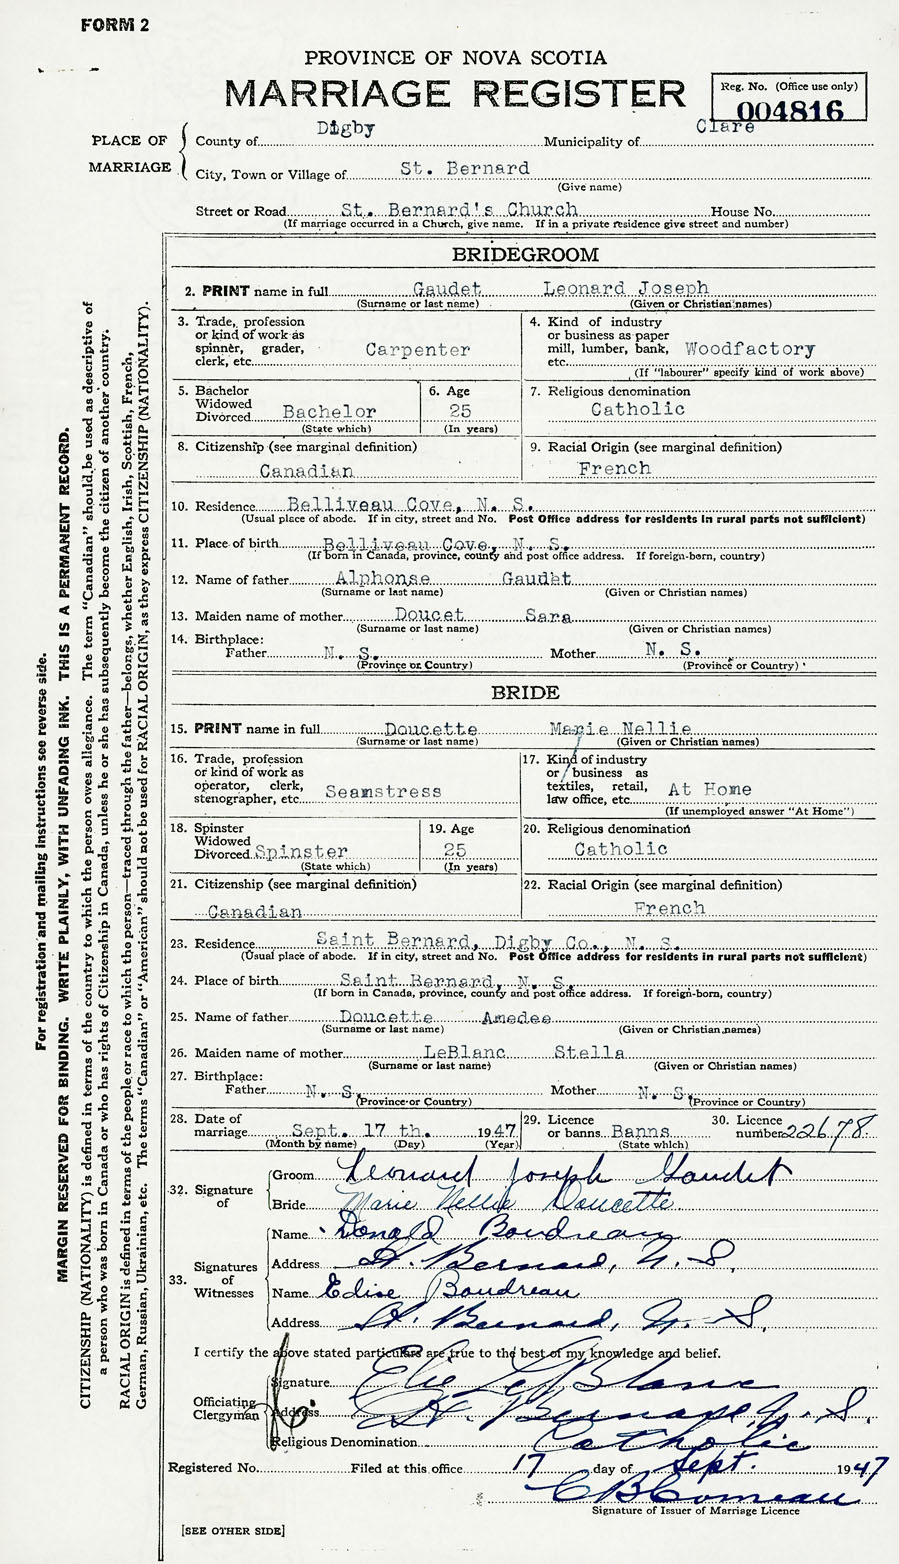 FORM 2
PROVINCE OF NOVA SCOTIA
MARRIAGE REGISTER
Reg. No. (Office use only)
004816
PLACE OF MARRIAGE
County of Digby Municipality of Clare
City, Town or Village of St. Bernard
(Give name)
Street or Road St. Bernard's Church House No.
(If marriage occurred in a Church, give name. If in a private residence give street and number)
BRIDEGROOM
2. PRINT name in full Gaudet Leonard Joseph
(Surname or last name) (Given or Christian names)
3. Trade, profession or kind of work as spinner, grader, clerk, etc. Carpenter
4. Kind of industry or business as paper mill, lumber, bank, etc. Woodfactory
(If "labourer" specify kind of work above)
5. Bachelor Widowed Divorced Bachelor
(State which)
6. Age 25
(In years)
7. Religious denomination
Catholic
8. Citizenship (see marginal definition)
Canadian
9. Racial Origin (see marginal definition)
French
10. Residence Belliveau Cove, N. S.
(Usual place of abode. If in city, street and No. Post Office address for residents in rural parts not sufficient)
11. Place of birth Belliveau Cove, N. S.
(If born in Canada, province, county and post office address. If foreign-born, country)
12. Name of father Alphonse Gaudet
(Surname or last name) (Given or Christian names)
13. Maiden name of mother Doucet Sara
(Surname or last name) (Given or Christian names)
14. Birthplace:
Father N. S. Mother N. S.
(Province or Country) (Province or Country)
BRIDE
15. PRINT name in full Doucette Marie Nellie
(Surname or last name) (Given or Christian names)
16. Trade, profession or kind of work as operator, clerk, stenographer, etc. Seamstress
17. Kind of industry or business as textiles, retail, law office, etc. At Home
(If unemployed answer "At Home")
18. Spinster Widowed Divorced Spinster
(State which)
19. Age 25
(In years)
20. Religious denomination
Catholic
21. Citizenship (see marginal definition)
Canadian
22. Racial Origin (see marginal definition)
French
23. Residence Saint Bernard, Digby Co., N. S.
(Usual place of abode. If in city, street and No. Post Office address for residents in rural parts not sufficient)
24. Place of birth Saint Bernard, N. S.
(If born in Canada, province, county and post office address. If foreign-born, country)
25. Name of father Doucette Amedee
(Surname or last name) (Given or Christian names)
26. Maiden name of mother LeBlanc Stella
(Surname or last name) (Given or Christian names)
27. Birthplace:
Father N. S. Mother N. S.
(Province or Country) (Province or Country)
28. Date of marriage Sept. 17 th. 1947
(Month by name) (Day) (Year)
29. Licence or banns Banns
(State which)
30. Licence number 22678
32. Signature of
Groom Leonard Joseph Gaudet
Bride Marie Nellie Doucette
33. Signatures of Witnesses
Name Donald Boudreau
Address St. Bernard, N. S.
Name Edise Boudreau
Address St. Bernard, N. S.
I certify the above stated particulars are true to the best of my knowledge and belief.
Officiating Clergyman
Signature Elie LeBlanc
Address St. Bernard, N. S.
Religious Denomination Catholic
Registered No. Filed at this office 17 day of Sept. 1947
C B Comeau
Signature of Issuer of Marriage Licence
[SEE OTHER SIDE]
For registration and mailing instructions see reverse side.
MARGIN RESERVED FOR BINDING. WRITE PLAINLY, WITH UNFADING INK. THIS IS A PERMANENT RECORD.
CITIZENSHIP (NATIONALITY) is defined in terms of the country to which the person owes allegiance. The term "Canadian" should be used as descriptive of
a person who was born in Canada or who has rights of Citizenship in Canada, unless he or she has subsequently become the citizen of another country.
RACIAL ORIGIN is defined in terms of the people or race to which the person—traced through the father—belongs, whether English, Irish, Scottish, French,
German, Russian, Ukrainian, etc. The terms "Canadian" or "American" should not be used for RACIAL ORIGIN, as they express CITIZENSHIP (NATIONALITY).